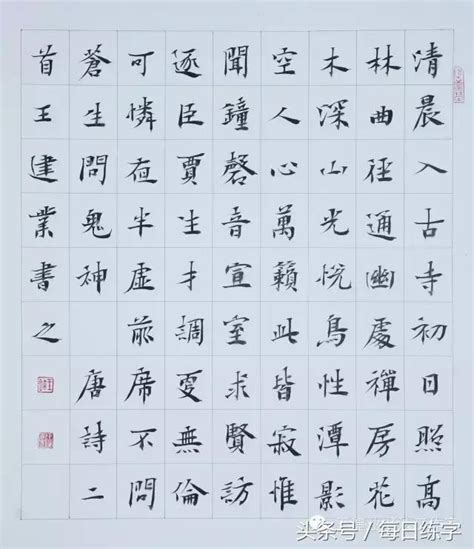 清晨入古寺初日照高
林曲徑通幽處禪房花
木深山光悅鳥性潭影
空人心萬籟此皆寂惟
聞鐘磬音宣室求賢訪
逐臣賈生才調更無倫
可憐夜半虛前席不問
蒼生問鬼神 唐詩二
首王建業書之
头条号／每日练字